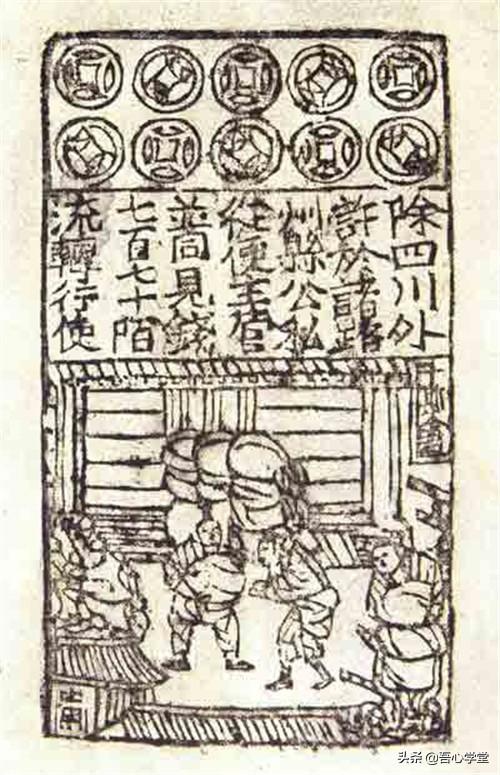 除四川外
許於諸路
州縣公私
從便主管
並同見錢
七百七十陌
流轉行使
头条 @吾心学堂